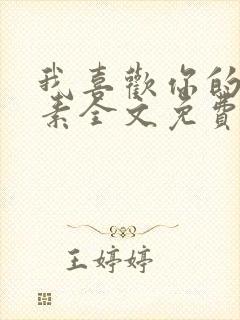 我喜歡你的
素全文免費
王婷婷